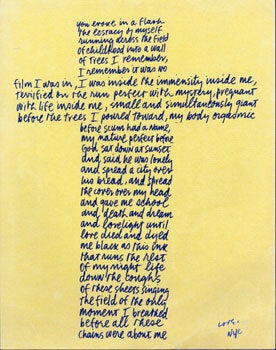 You exoxe in a Flash
the ecstacy of myself
running across the field
of childhood into a wall
of trees I remember,
I remember it was no
film I was in, I was inside the immensity inside me,
terrified on the run perfect with mystery, pregnant
with life inside me, small and simultaneously giant
before the trees I poured toward, my body orgasmic
before scum had a name,
my nature perfect before
God sat down at sunset
and said he was lonely
and spread a city over
his bread, and spread
the cover over my head
and gave me school
and death and dream
and lovelight until
love died and dyed
me black as this ink
that runs the rest
of my night life
down the troughs
of these sheets singing
the field of the only
moment I breathed
before all these
chains were about me
love.
NYC